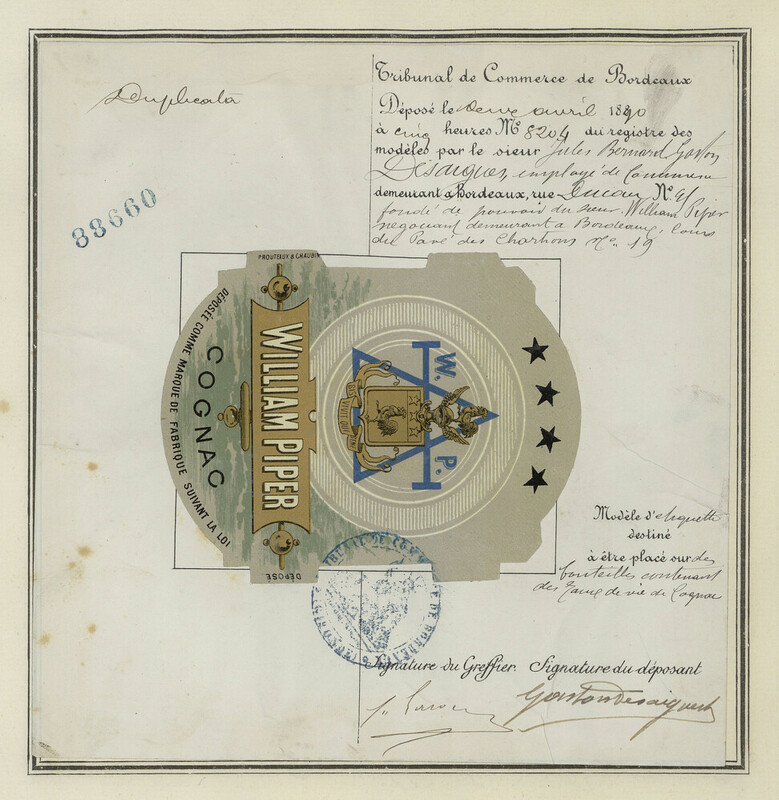 Duplicata
88660
Tribunal de Commerce de Bordeaux
Déposé le deux avril 1890
à cinq heures N° 8204 du registre des
modèles par le sieur Jules Bernard Gaston
Désaigues, employé de Commerce
demeurant à Bordeaux, rue N°
fondé de pouvoir du sieur William Piper
négociant demeurant à Bordeaux, Cours
du Pavé des Chartrons N° 19
PROUTEAUX & CHAUBIN
DÉPOSÉE COMME MARQUE DE FABRIQUE SUIVANT LA LOI
COGNAC
WILLIAM PIPER
DÉPOSÉ
W. P.
BIS VIVIT QUI
Modèle d'étiquette
destiné
à être placé sur des
bouteilles contenant
des Eaux de vie de Cognac
TRIBUNAL DE COMMERCE DE BORDEAUX
Signature du Greffier. Signature du déposant